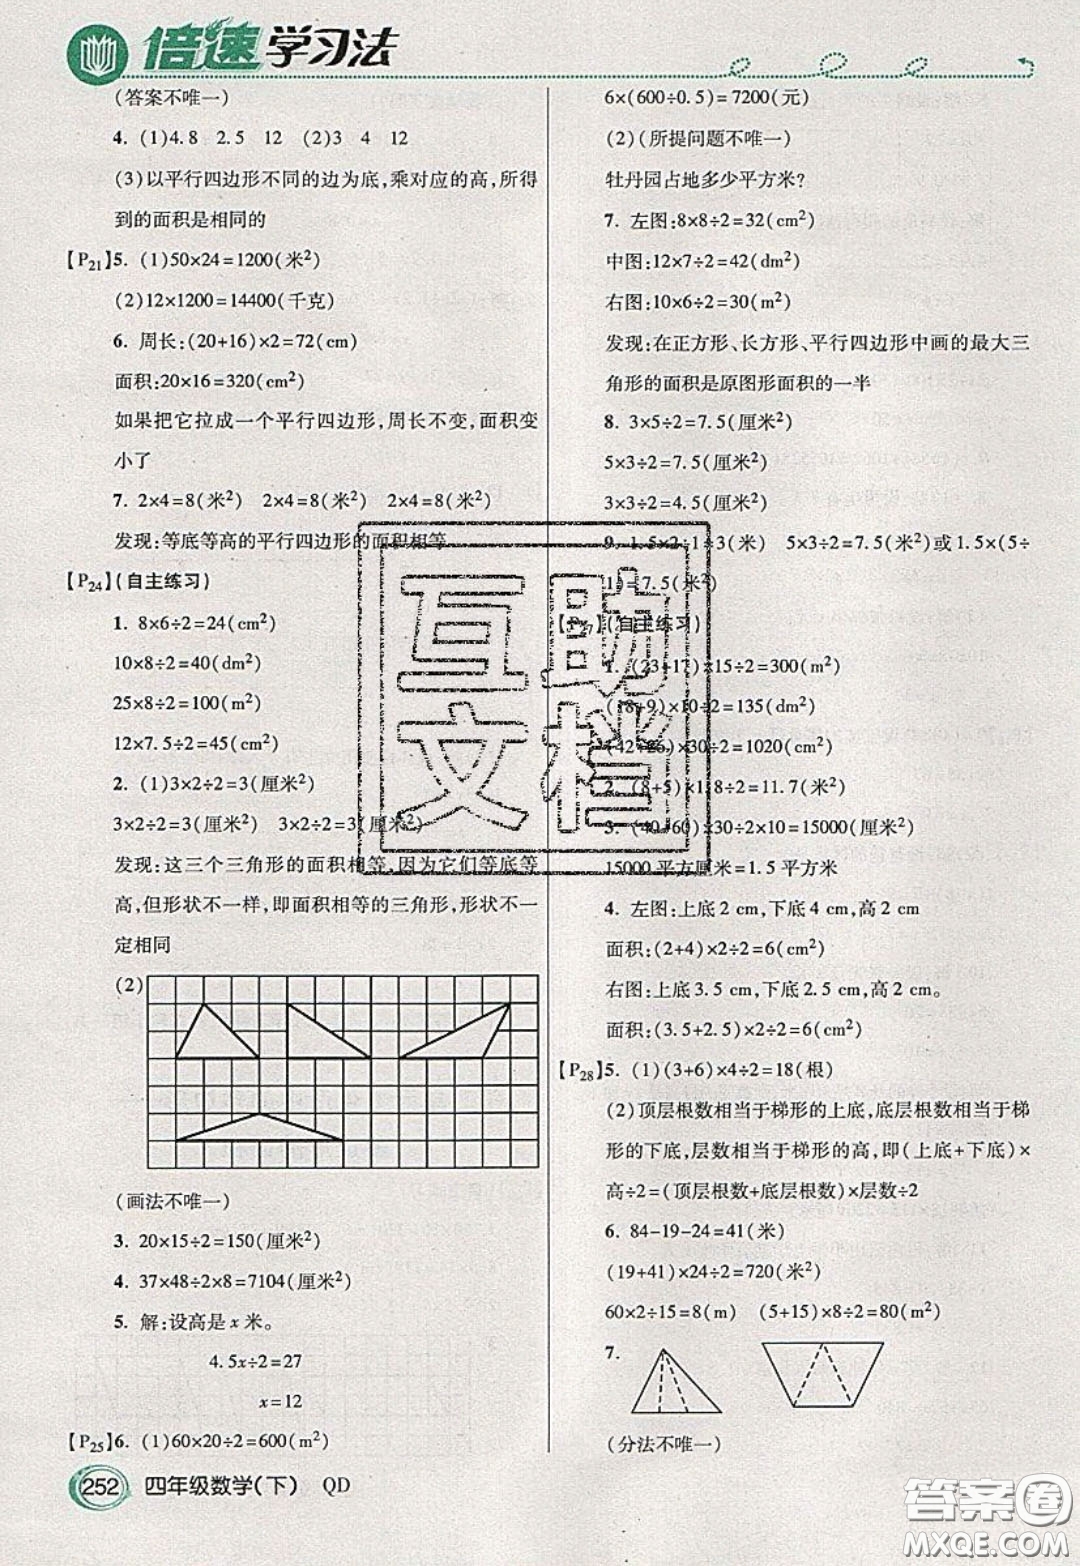 倍速学习法
(答案不唯一)
4. (1)4.8 2.5 12 (2)3 4 12
(3)以平行四边形不同的边为底,乘对应的高,所得
到的面积是相同的
【P21】5. (1)50×24=1200(米²)
(2)12×1200=14400(千克)
6. 周长:(20+16)×2=72(cm)
面积:20×16=320(cm²)
如果把它拉成一个平行四边形,周长不变,面积变
小了
7. 2×4=8(米²) 2×4=8(米²) 2×4=8(米²)
发现:等底等高的平行四边形的面积相等
【P24】(自主练习)
1. 8×6÷2=24(cm²)
10×8÷2=40(dm²)
25×8÷2=100(cm²)
12×7.5÷2=45(cm²)
2. (1)3×2÷2=3(厘米²)
3×2÷2=3(厘米²) 3×2÷2=3(厘米²)
发现:这三个三角形的面积相等,因为它们等底等
高,但形状不一样,即面积相等的三角形,形状不一
定相同
(2)
(画法不唯一)
3. 20×15÷2=150(厘米²)
4. 37×48÷2×8=7104(厘米²)
5. 解:设高是x米。
4.5x÷2=27
x=12
【P25】6. (1)60×20÷2=600(m²)
6×(600÷0.5)=7200(元)
(2)(所提问题不唯一)
牡丹园占地多少平方米?
7. 左图:8×8÷2=32(cm²)
中图:12×7÷2=42(dm²)
右图:10×6÷2=30(m²)
发现:在正方形、长方形、平行四边形中画的最大三
角形的面积是原图形面积的一半
8. 3×5÷2=7.5(厘米²)
5×3÷2=7.5(厘米²)
3×3÷2=4.5(厘米²)
9. 1.5×2÷1=3(米) 5×3÷2=7.5(米²)或1.5×(5÷
1)=7.5(米²)
(自主练习)
1. (23+17)×15÷2=300(m²)
(18+9)×10÷2=135(dm²)
(42+26)×30÷2=1020(cm²)
2. (8+5)×1.8÷2=11.7(米²)
3. (40+60)×30÷2×10=15000(厘米²)
15000平方厘米=1.5平方米
4. 左图:上底2 cm,下底4 cm,高2 cm
面积:(2+4)×2÷2=6(cm²)
右图:上底3.5 cm,下底2.5 cm,高2 cm。
面积:(3.5+2.5)×2÷2=6(cm²)
【P28】5. (1)(3+6)×4÷2=18(根)
(2)顶层根数相当于梯形的上底,底层根数相当于梯
形的下底,层数相当于梯形的高,即(上底+下底)×
高÷2=(顶层根数+底层根数)×层数÷2
6. 84-19-24=41(米)
(19+41)×24÷2=720(米²)
60×2÷15=8(m) (5+15)×8÷2=80(m²)
7.
(分法不唯一)
互助
文档
252 四年级数学(下) QD
答案圈
MXQE.COM